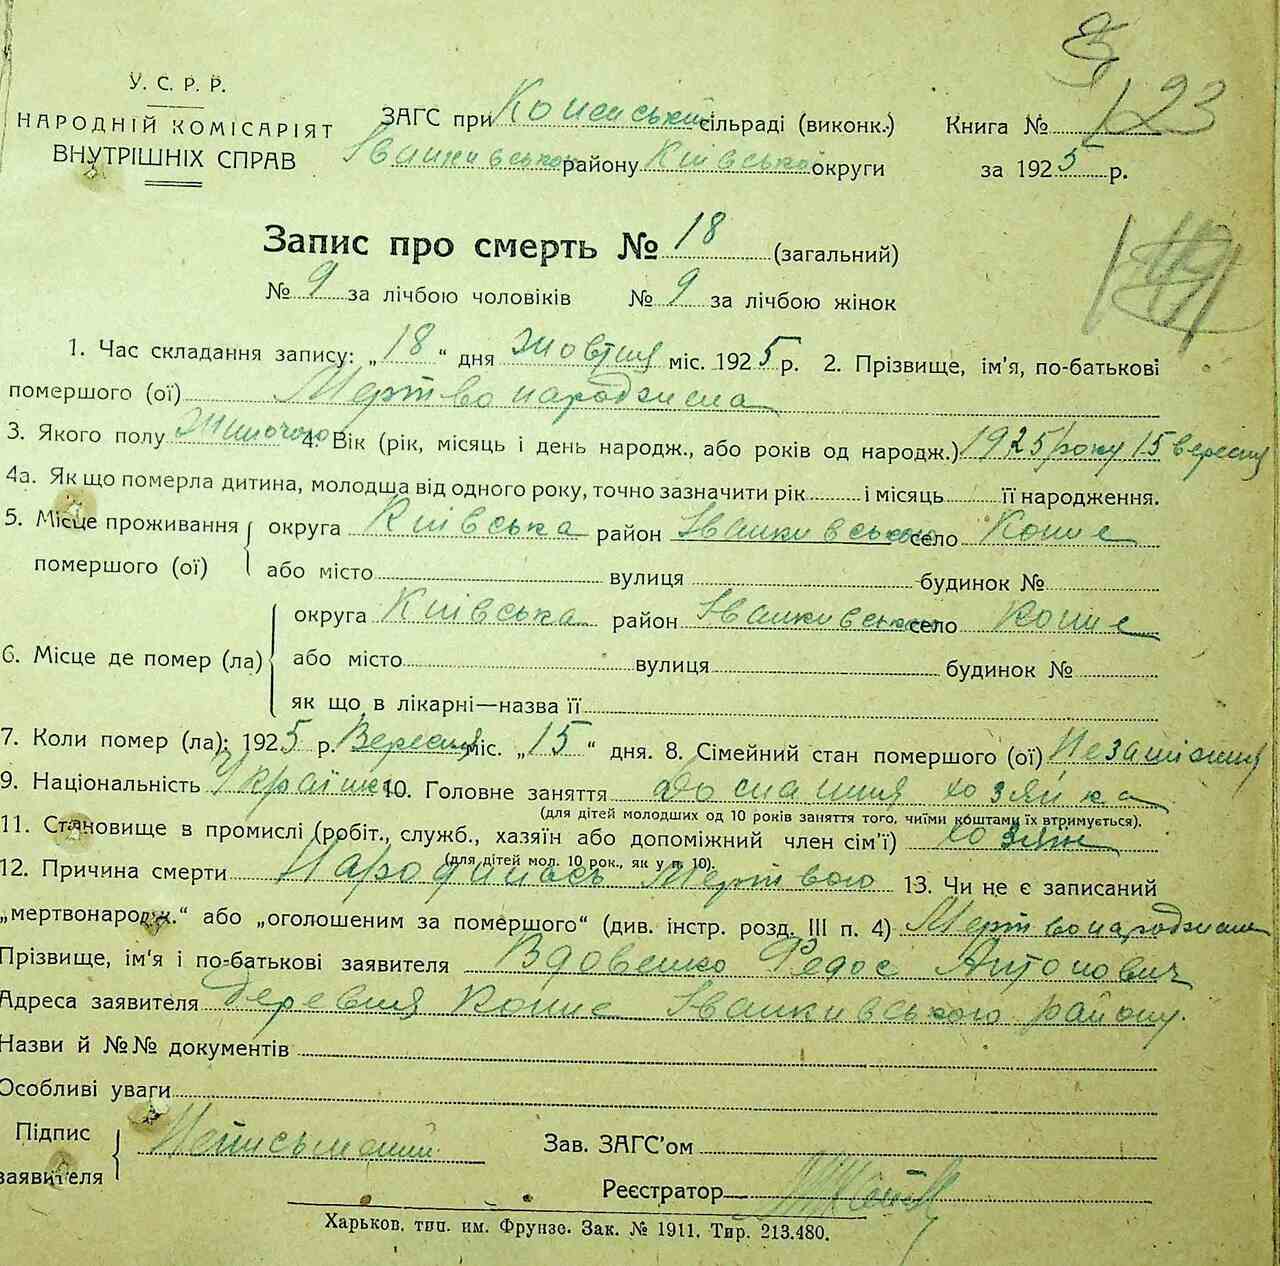 У. С. Р. Р.
НАРОДНІЙ КОМІСАРІЯТ
ВНУТРІШНІХ СПРАВ
ЗАГС при сільраді (виконк.)
Іванківського району Київської округи
Книга №
за 1925 р.
123
Запис про смерть № 18 (загальний)
№ 9 за лічбою чоловіків № 9 за лічбою жінок
1. Час складання запису: „18“ дня жовтня міс. 1925 р. 2. Прізвище, ім'я, по-батькові
помершого (ої) Мертвонароджена
3. Якого полу жіночого 4. Вік (рік, місяць і день народж., або років од народж.) 1925 року 15 вересня
4а. Як що померла дитина, молодша від одного року, точно зазначити рік і місяць її народження.
5. Місце проживання помершого (ої) округа Київська район Іванківського село
або місто вулиця будинок №
6. Місце де помер (ла) округа Київська район Іванківського село
або місто вулиця будинок №
як що в лікарні—назва її
7. Коли помер (ла): 1925 р. Вересня міс. „15“ дня. 8. Сімейний стан помершого (ої) Незаміжня
9. Національність Українка 10. Головне заняття Домашня хозяйка
(для дітей молодших од 10 років заняття того, чиїми коштами їх втримується).
11. Становище в промислі (робіт., служб., хазяїн або допоміжний член сім'ї) хозяїн
(для дітей мол. 10 рок., як у п. 10).
12. Причина смерти Народилась мертвою 13. Чи не є записаний
„мертвонародж.“ або „оголошеним за помершого“ (див. інстр. розд. III п. 4) Мертвонароджена
Прізвище, ім'я і по-батькові заявителя Вдовенко Федос Антонович
Адреса заявителя деревня Іванківського району.
Назви й №№ документів
Особливі уваги
Підпис заявителя Неписьменний
Зав. ЗАГС'ом
Реєстратор
Харьков, тип. им. Фрунзе. Зак. № 1911. Тир. 213.480.